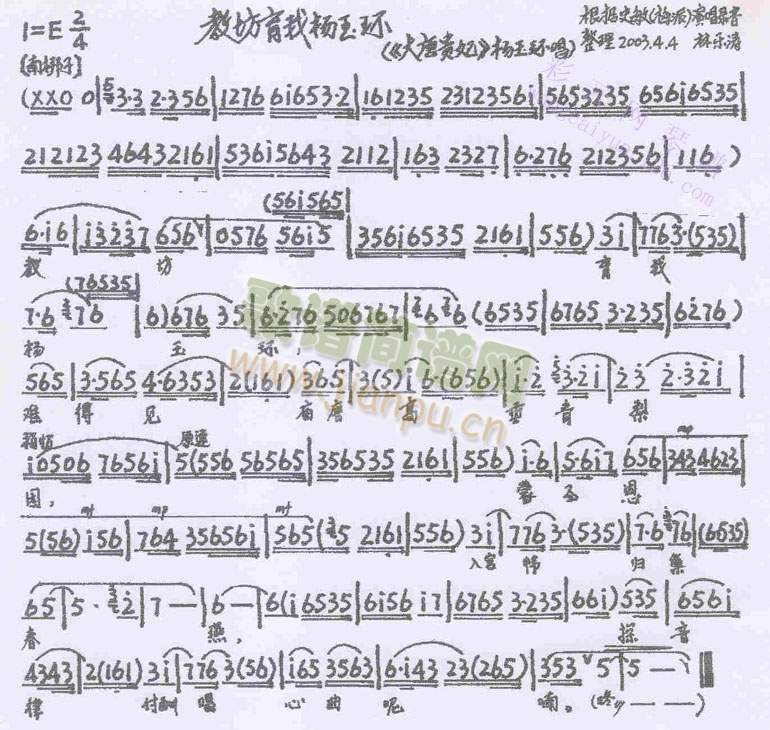 1=E 2/4 教坊育我杨玉环 根据史敏(梅派)演唱录音
(《大唐贵妃》杨玉环唱) 整理2003.4.4 林乐涛
[南梆子]
(XX0 0|3·3 2·356|1276 6i653·2|161235 2312356i|5653235 656i6535|
212123 46432161|536i5643 2112|163 2327|6·276 212356|116)
(56i565)
6·i6|i3237 656|0576 56i5|356i6535 2161|556) 3i|7763·(535)|
教 坊 育 我
(76535)
7·6 76|6)676 35|6·276 506767|6 6 (6535|6765 3·235|6276)
杨 玉 环,
565|3·565 4·6353|2(161) 365|3(5)i 6·(656)|i·2 3·2i|23 2·32i|
难 得 见 音 梨
稍慢 原速 mp
i0506 7656i|5(556 56565|356535 2161|556) i·6|5·6i7 656|343 4623|
园, 恩
mf mp mf
5(56) i56|764 35656i|565(5 2161|556) 3i|776 3·(535)|7·6 76|(6535)
入宫 帏 归 巢
65|5· 2|7 —|6 —|6(i 6535|6i56 i7|6765 3·235|66i) 535|656i|
春 燕, 探 音
4343|2(161) 3i|776 3(56)|i65 3563|6·i43 23(265)|353 5|5 —|
律 付 唱 心 曲 呢 喃。